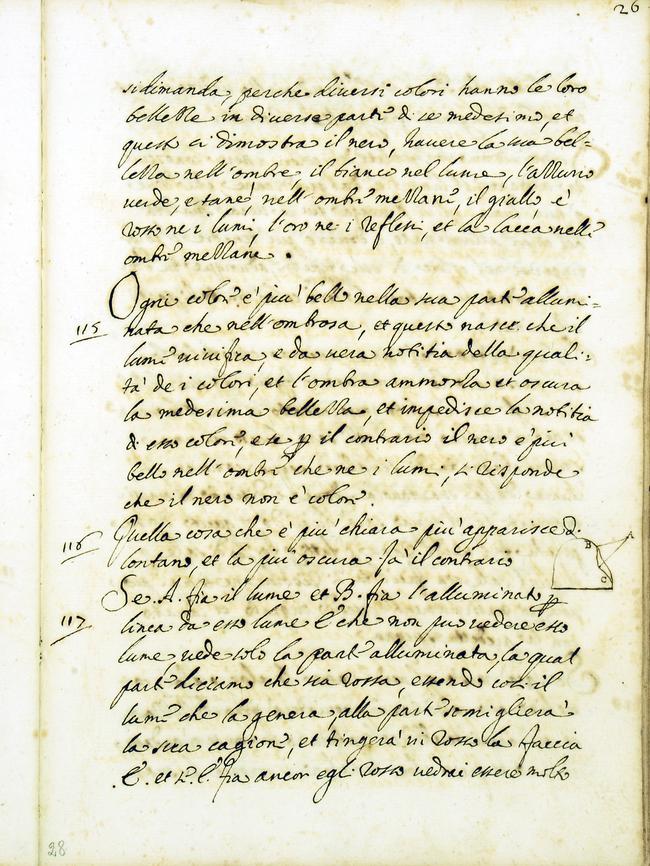 26
si dimanda, perche diversi colori hanno le loro
bellezze in diverse parti di se medesimo, et
questo ci dimostra il nero, havere la sua bel=
lezza nell'ombre, il bianco nel lume, l'azzurro
verde, e tanè, nell'ombre mezzane, il giallo è
rosso ne i lumi, l'oro ne i reflessi, et la lacca nelle
ombre mezzane.
Ogni colore è più bello nella sua parte allumi=
115 nata che nell'ombrosa, et questo nasce che il
lume vivifica, e da vera notitia della quali=
tà de i colori, et l'ombra ammorza et oscura
la medesima bellezza, et impedisce la notitia
di esso colore, e se per il contrario il nero è più
bello nell'ombre che ne i lumi, si risponde
che il nero non è colore.
Quella cosa che è più chiara più apparisce di
116 lontano, et la più oscura fà il contrario
A B C
Se .A. fia il lume et B. fia l'alluminato per
117 linea da esso lume C. che non può vedere esso
lume, vede solo la parte alluminata, la qual
parte diciamo che sia rossa, essendo così il
lume che la genera alla parte somiglierà
la sua cagione, et tingerà in rosso la faccia
.C. et se .C. fia ancor egli rosso vedrai essere molto
28